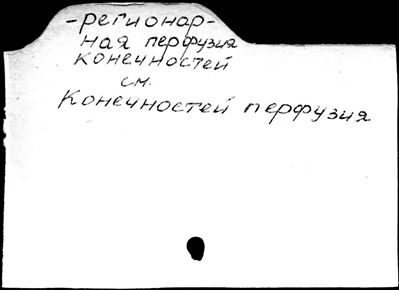 -регионар-
ная перфузия
конечностей
см.
Конечностей перфузия